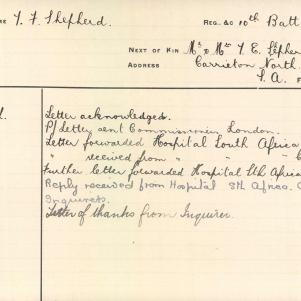 RE T. F. Shepherd. REG. &C 10th Batt
NEXT OF KIN Mr & Mrs T. E. Shepher
ADDRESS Carrieton North.
S.A.
Letter acknowledged.
P/ Letter sent Commissioner London.
Letter forwarded Hospital South Africa
" received from " "
Further letter forwarded Hospital Sth Africa
Reply received from Hospital Sth Africa.
Inquirers.
Letter of thanks from Inquirer.